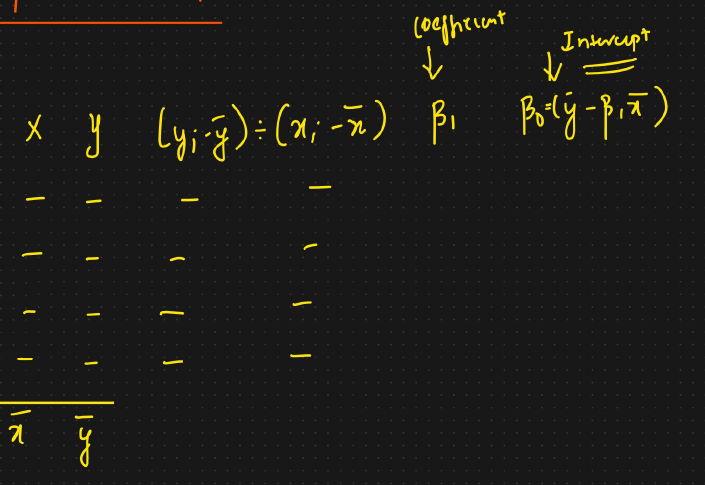 Coefficient
↓ Intercept
↓
x y (yᵢ - ȳ) ÷ (xᵢ - x̄) β₁ β₀ = (ȳ - β₁x̄)
– – – –
– – – –
– – – –
– – – –
x̄ ȳ